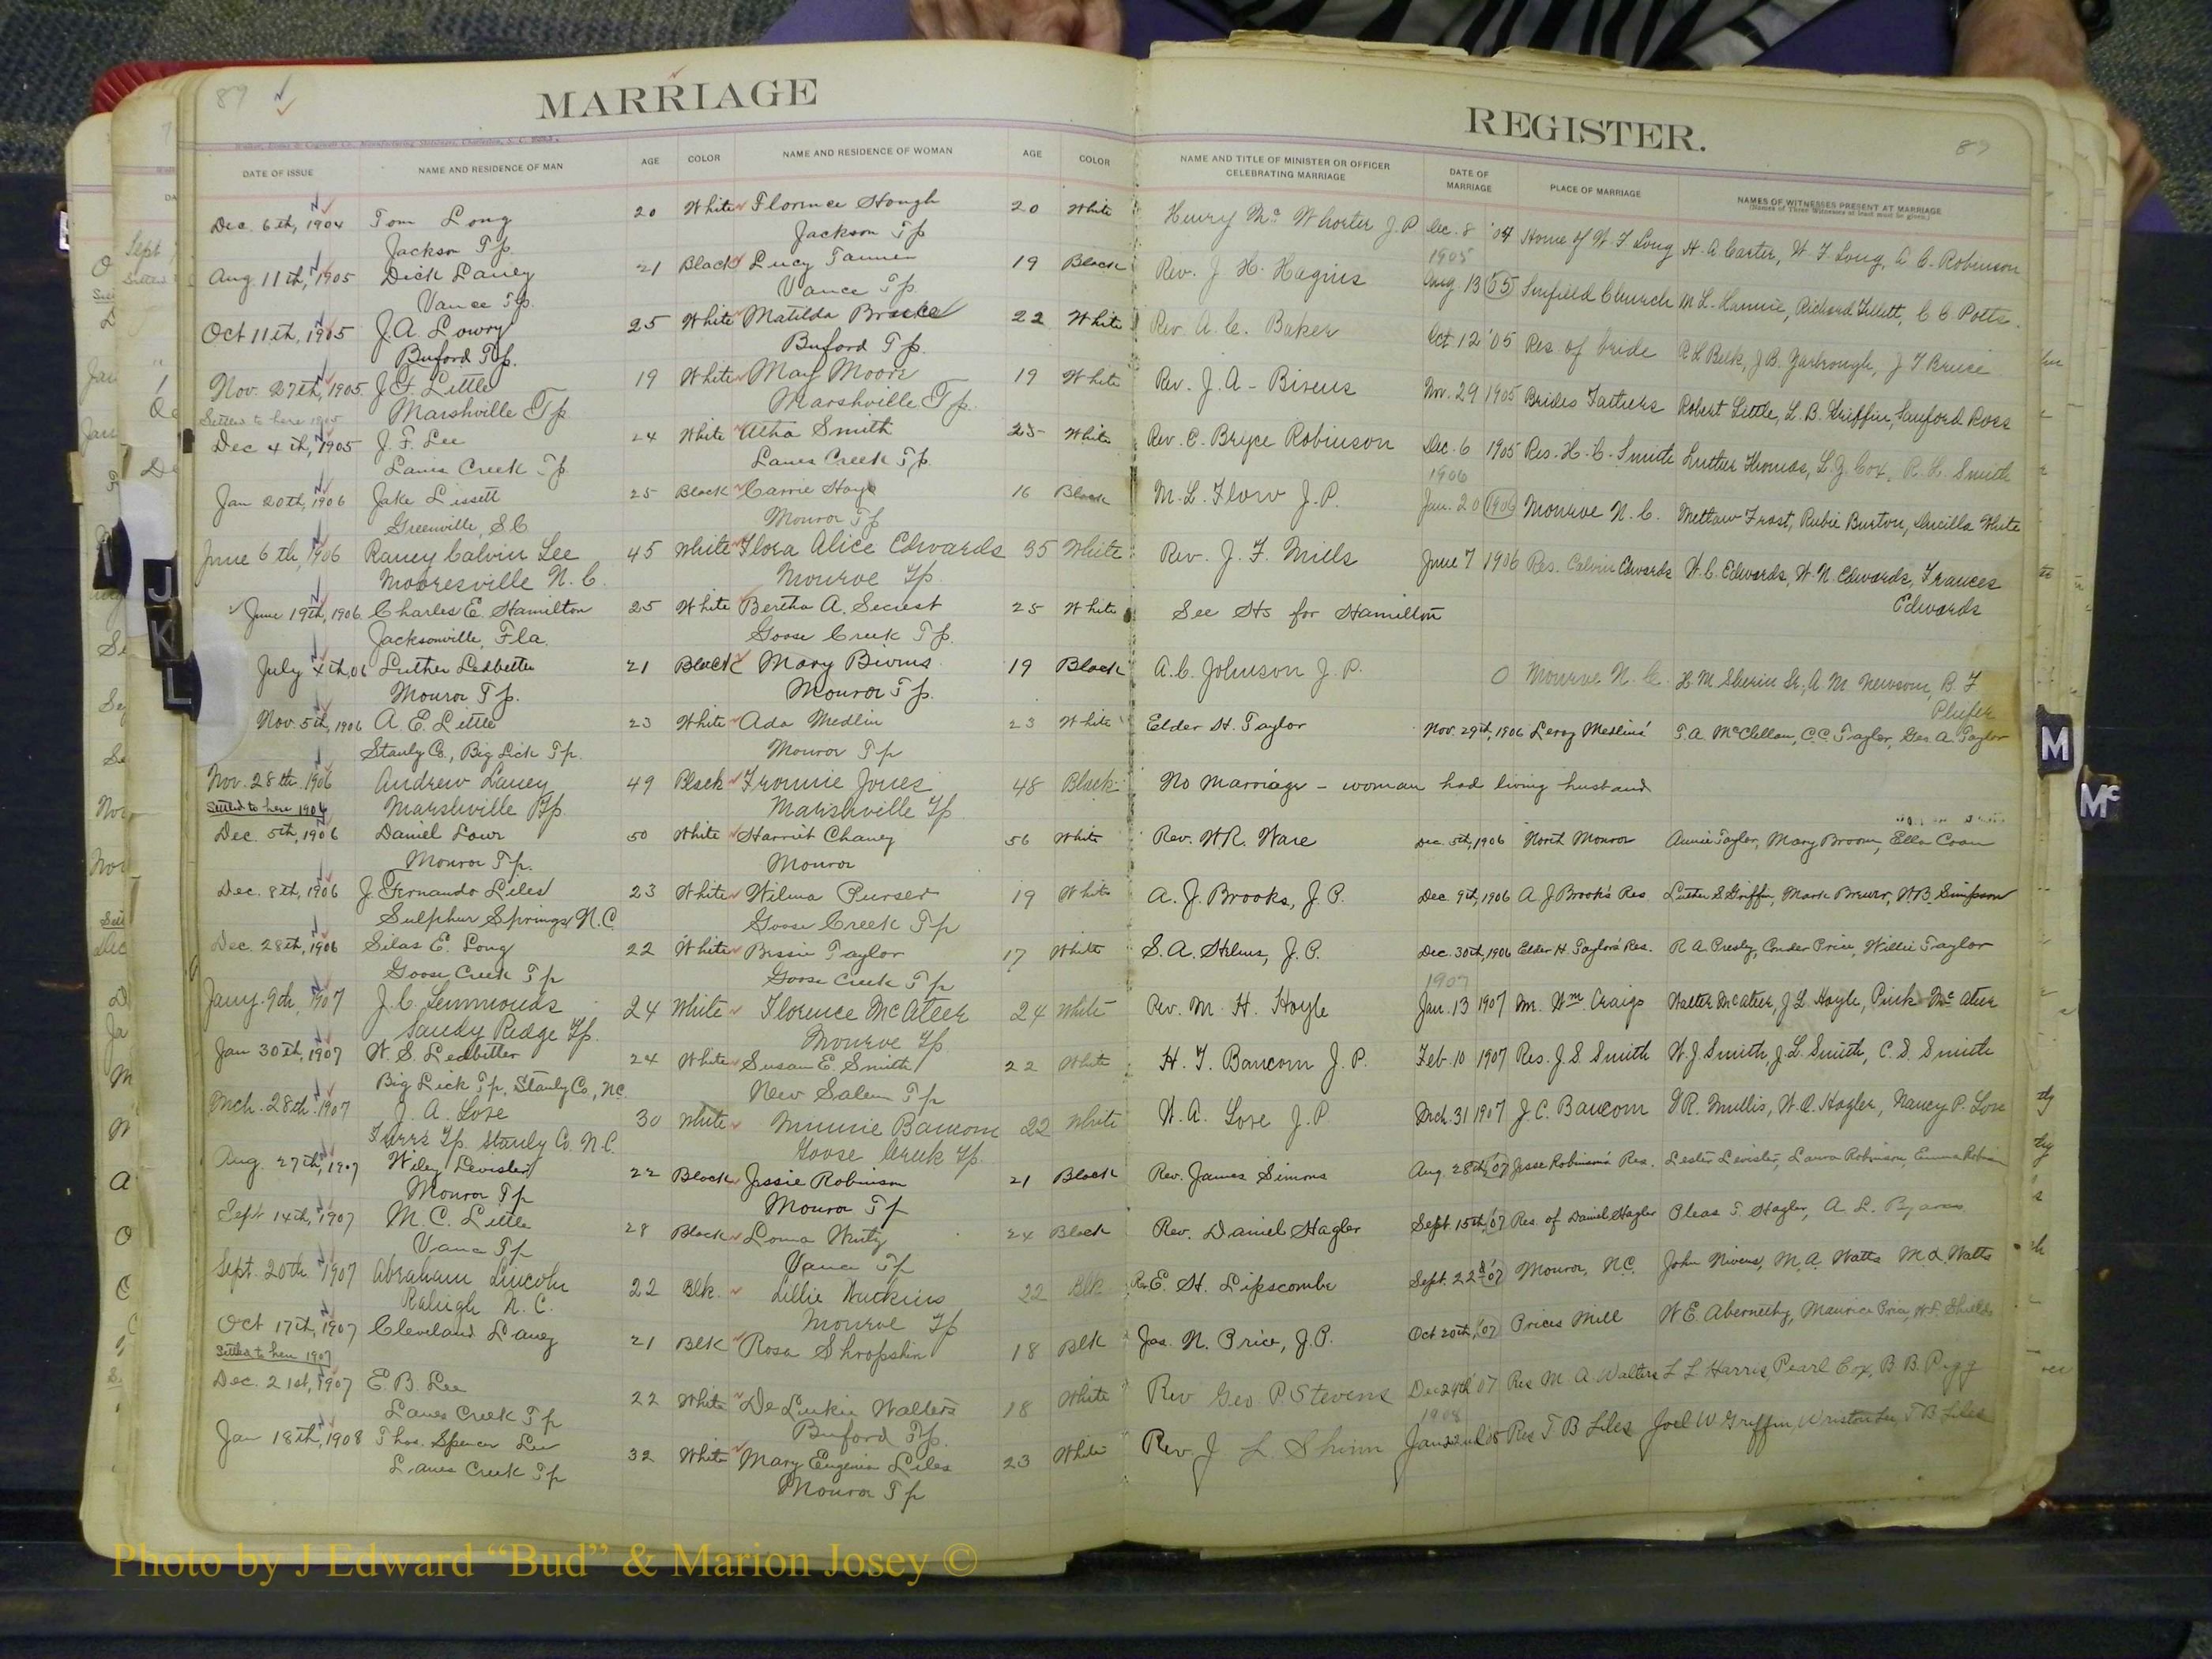 89
MARRIAGE REGISTER.
89
DATE OF ISSUE NAME AND RESIDENCE OF MAN AGE COLOR NAME AND RESIDENCE OF WOMAN AGE COLOR NAME AND TITLE OF MINISTER OR OFFICER CELEBRATING MARRIAGE DATE OF MARRIAGE PLACE OF MARRIAGE NAMES OF WITNESSES PRESENT AT MARRIAGE
(Names of Three Witnesses at least must be given.)
Dec. 6th, 1904 Tom Long 20 White Florence Hough 20 White Henry McWhorter J.P. Dec. 8 '04 Home of W. F. Long H. A. Carter, W. F. Long, A. C. Robinson
Jackson Tp. Jackson Tp 1905
Aug 11th, 1905 Dick Laney 21 Black Lucy Tanner 19 Black Rev. J. H. Hagins Aug. 13 05 Church M. L. Richard Tillett, C C Potts.
Vance Tp. Vance Tp.
Oct 11th, 1905 J.A. Lowry 25 White Matilda 22 White Rev. A. C. Baker Oct. 12 '05 Res. of bride R L Belk, J. B. Yarbrough, J T Bruce
Buford Tp. Buford Tp.
Nov. 27th, 1905 J.F. Little 19 White May Moore 19 White Rev. J. A. Bivens Nov. 29 1905 Brides Fathers Robert Little, L. B. Griffin, Sanford Ross
Settled to here 1905 Marshville Tp. Marshville Tp.
Dec 4th, 1905 J. F. Lee 24 White Atha Smith 25 White Rev. C. Bryce Robinson Dec. 6 1905 Res. H. C. Smith Luther Thomas, L. J. Cox, R. H. Smith
Lanes Creek Tp. Lanes Creek Tp. 1906
Jan 20th, 1906 Jake Lissett 25 Black Carrie Hays 16 Black M. L. Flow J.P. Jan. 20 1906 Monroe N.C. Frost, Rubie Burton, Lucilla White
Greenville, S.C. Monroe Tp
June 6th, 1906 Raney Calvin Lee 45 White Flora Alice Edwards 35 White Rev. J. F. Mills June 7 1906 Res. Calvin Edwards W. C. Edwards, W. N. Edwards, Frances
Mooresville N.C. Monroe Tp. Edwards
June 19th, 1906 Charles E. Hamilton 25 White Bertha A. Secrest 25 White See Hs for Hamilton
Jacksonville, Fla. Goose Creek Tp.
July 4th, 06 Luther Ledbetter 21 Black Mary Bivins 19 Black A. C. Johnson J. P. 0 Monroe N. C. A. M. Newsom, B. F
Monroe Tp. Monroe Tp. Phifer
Nov. 5th, 1906 A. E. Little 23 White Ada Medlin 23 White Elder H. Taylor Nov. 29th, 1906 Leroy Medlins' T. A. McClellan, C.C. Taylor, Geo. A. Taylor
Stanly Co., Big Lick Tp. Monroe Tp
Nov. 28th 1906 Andrew Laney 49 Black Fronnie Jones 48 Black No Marriage - woman had living husband
Settled to here 1906 Marshville Tp. Marshville Tp.
Dec. 5th, 1906 Daniel Lowr 50 White Harriet Chaney 56 White Rev. W.R. Ware Dec. 5th, 1906 North Monroe Annie Taylor, Mary Broom, Ella Coan
Monroe Tp. Monroe
Dec. 8th, 1906 J. Fernando Liles 23 White Wilma Purser 19 White A. J. Brooks, J. P. Dec 9th, 1906 A J Brook's Res. Luther S. Griffin, Mark Brewer, W.B. Simpson
Sulphur Springs, N.C. Goose Creek Tp
Dec. 28th, 1906 Silas E. Long 22 White Bessie Taylor 17 White S. A. Helms, J. P. Dec. 30th, 1906 Elder H. Taylors' Res. R A Presly, Conder Price, Willie Taylor
Goose Creek Tp Goose Creek Tp 1907
Jany. 9th, 1907 J. C. Lemmonds 24 White Florence McAteer 24 White Rev. M. H. Hoyle Jan. 13 1907 Mr. Wm Craigs Walter McAteer, J L Hoyle, Pink McAteer
Sandy Ridge Tp. Monroe Tp.
Jan 30th, 1907 W. S. Ledbetter 24 White Susan E. Smith 22 White H. T. Baucom J. P. Feb. 10 1907 Res. J. S Smith W. J. Smith, J. L. Smith, C. S. Smith
Big Lick Tp, Stanly Co, N.C. New Salem Tp
Mch. 28th 1907 J. A. Love 30 White Minnie Baucom 22 White W. A. Love J. P. Mch. 31 1907 J. C. Baucom Mullis, W. A. Hagler, Nancy P. Love
Furrs Tp. Stanly Co. N.C. Goose Creek Tp.
Aug. 27th, 1907 Wiley Levister 22 Black Jessie Robinson 21 Black Rev. James Simons Aug. 28th 07 Jesse Robinson's Res. Lester Levister, Laura Robinson, Emma Robinson
Monroe Tp Monroe Tp
Sept 14th, 1907 M. C. Little 28 Black Loma 24 Black Rev. Daniel Hagler Sept. 15th, 07 Res. of Daniel Hagler Pleas T. Hagler, A. L.
Vance Tp Vance Tp
Sept. 20th 1907 Abraham Lincoln 22 Blk. Lillie Watkins 22 Blk Rev E. H. Lipscombe Sept. 22 '07 Monroe, N.C. John Nivens, M. A. Watts M. L. Watts
Raleigh N. C. Monroe Tp
Oct 17th, 1907 Cleveland Laney 21 Blk Rosa Shropshire 18 Blk Jas. N. Price, J.P. Oct 20th, 07 Prices Mill W E. Abernethy, Maurice Price, H. L. Shields
Settled to here 1907
Dec. 21st, 1907 E. B. Lee 22 White De Luckie Walters 18 White Rev Geo P. Stevens Dec 24th '07 Res M. A. Walters L L Harris, Pearl Cox, B. B. Pigg
Lanes Creek Tp Buford Tp. 1908
Jan 18th, 1908 Thos. Spencer Lee 32 White Mary Eugenia Liles 23 White Rev. J L. Shinn Jan 22nd '08 Res T B Liles Joel W Griffin, Wriston Lee, T B Liles
Lanes Creek Tp Monroe Tp
J
K
L
M
Mc
Photo by J Edward “Bud” & Marion Josey ©